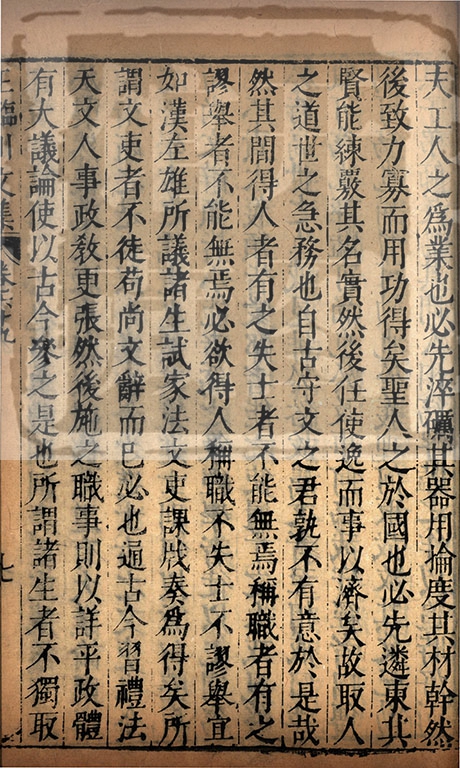 夫工人之為業也必先淬礪其器用掄度其材幹然
後致力寡而用功得矣聖人之於國也必先遴柬其
賢能練覈其名實然後任使逸而事以濟矣故取人
之道世之急務也自古守文之君孰不有意於是哉
然其間得人者有之失士者不能無焉稱職者有之
謬舉者不能無焉必欲得人稱職不失士不謬舉宜
如漢左雄所議諸生試家法文吏課牋奏為得矣所
謂文吏者不徒苟尚文辭而已必也通古今習禮法
天文人事政教更張然後施之職事則以詳平政體
有大議論使以古今參之是也所謂諸生者不獨取
王臨川文集 卷六十九 七